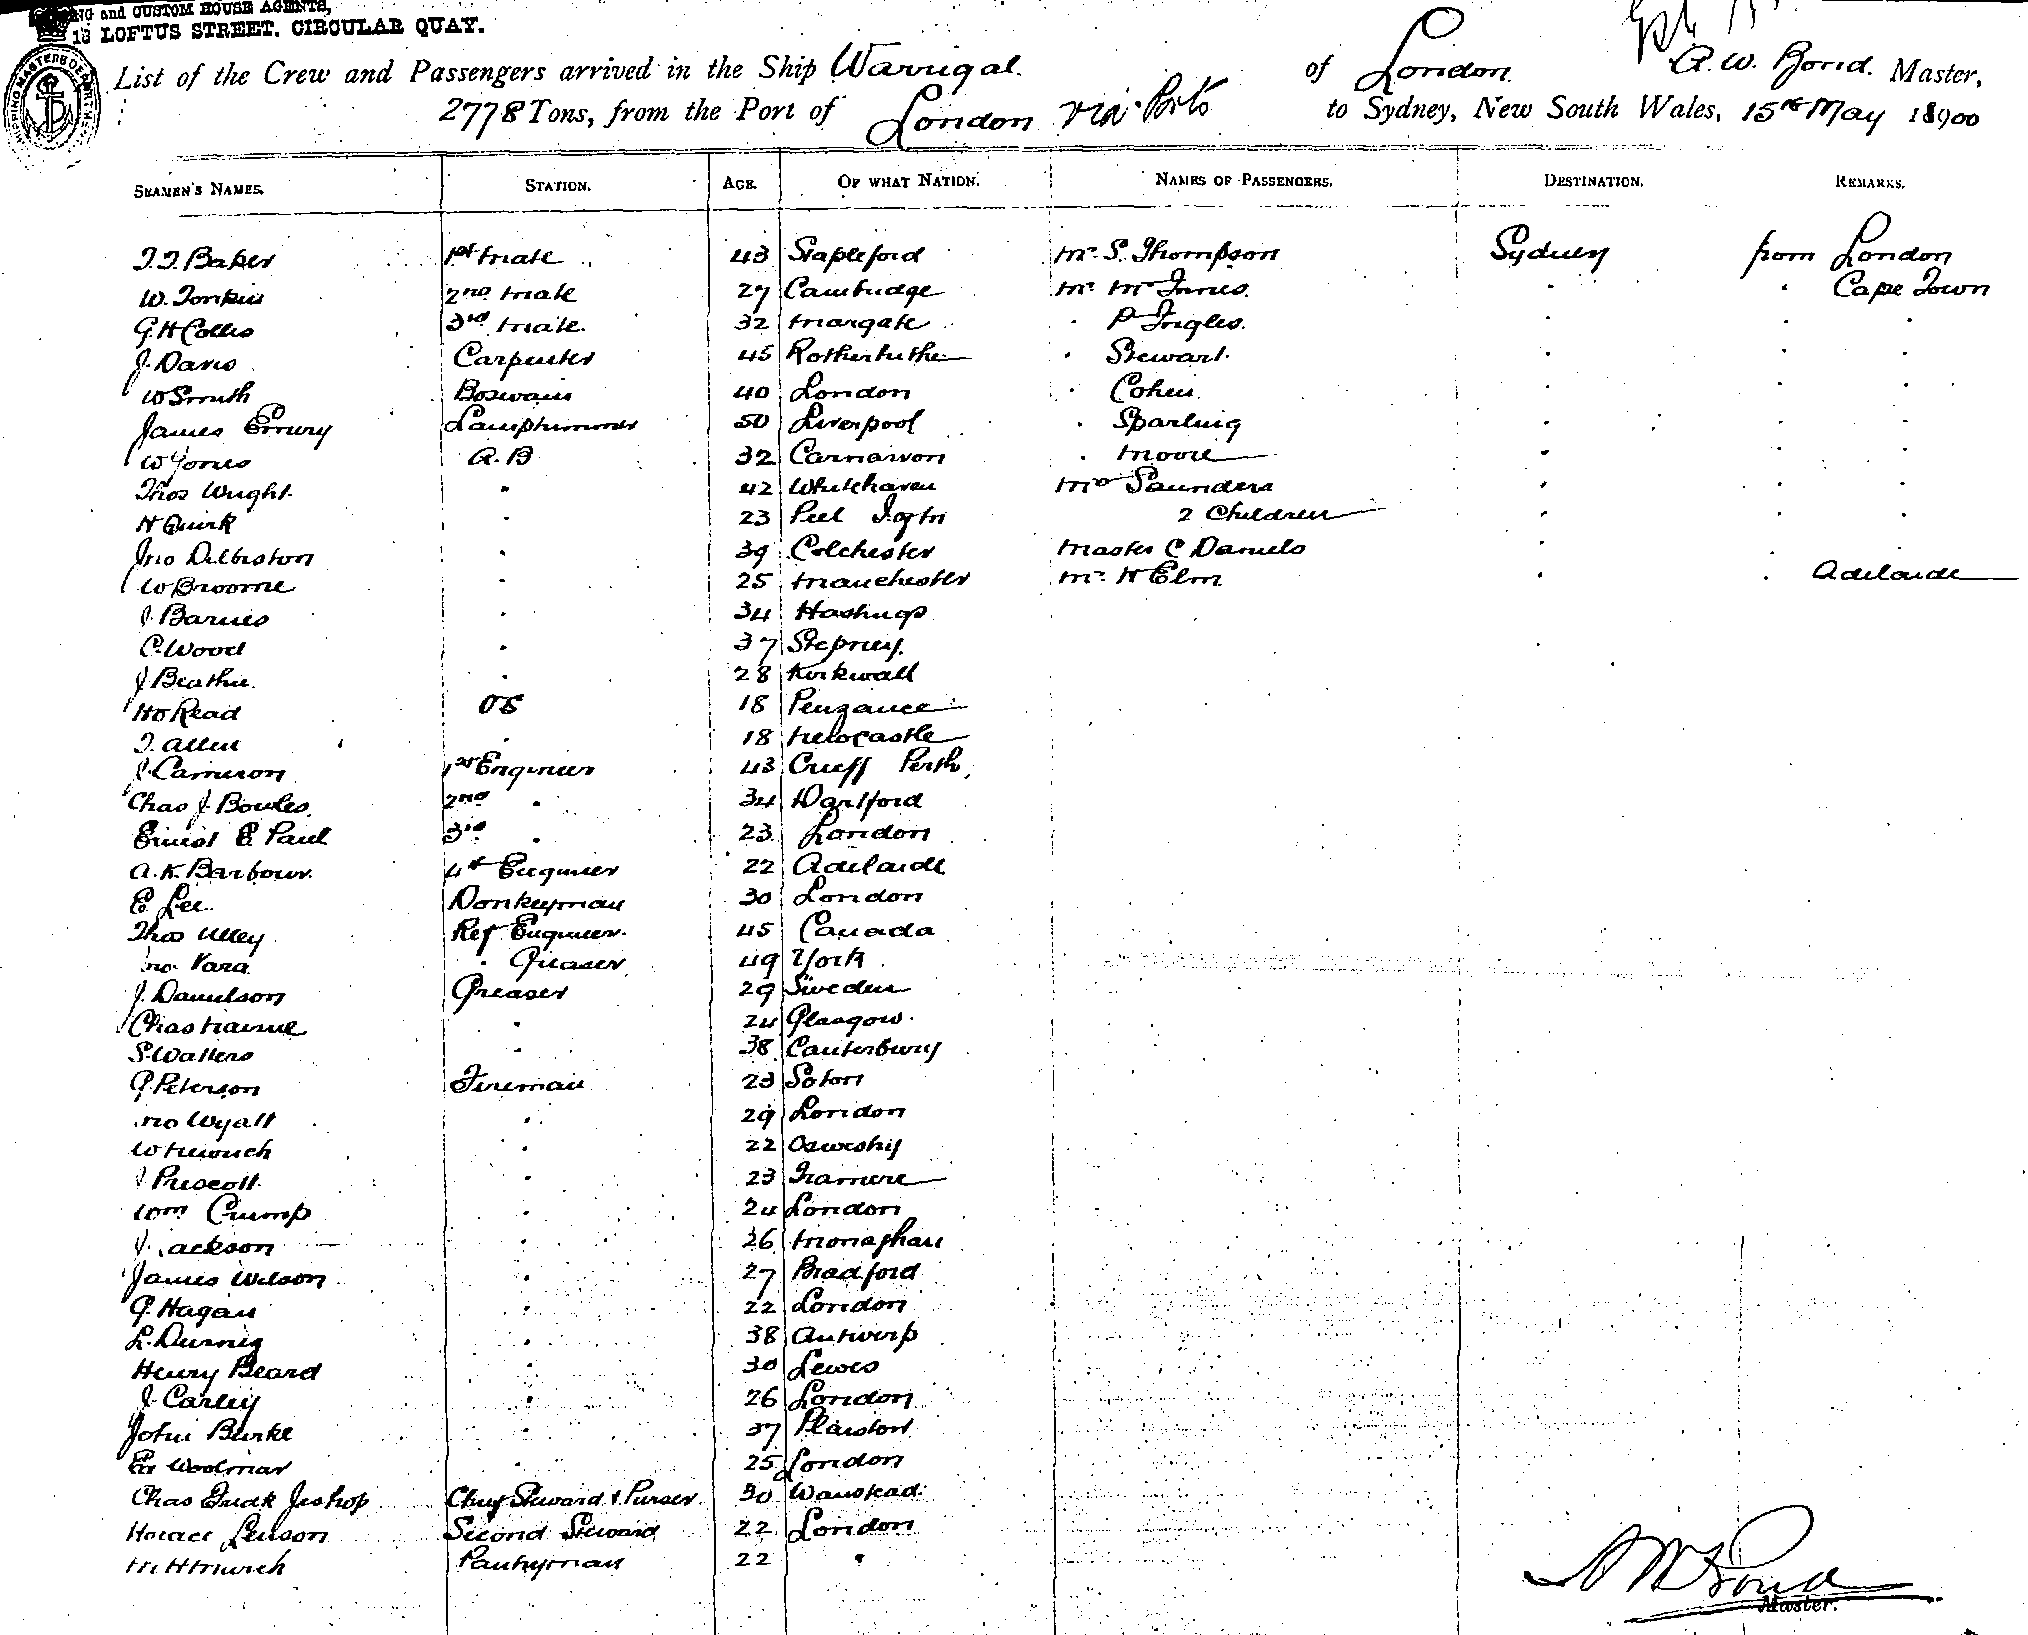 NG and CUSTOM HOUSE AGENTS,
13 LOFTUS STREET. CIRCULAR QUAY.
SHIPPING MASTER
List of the Crew and Passengers arrived in the Ship Warrigal. of London A. W. Bond. Master,
2778 Tons, from the Port of London via Ports to Sydney, New South Wales, 15th May 18900
SEAMEN'S NAMES. STATION. AGE. OF WHAT NATION. NAMES OF PASSENGERS. DESTINATION. REMARKS.
T. T. Baker 1st Mate 43 Stapleford Mr. S. Thompson Sydney from London
W. Tonkin 2nd Mate 27 Cambridge Mr McInnes. " " Cape Town
G. H Collis 3rd Mate. 32 Margate " P Ingles. " " "
J. Davis Carpenter 45 Rotherhithe " Stewart. " " "
W Smith Boswain 40 London " Cohen " " "
James Emery Lamptrimmer 50 Liverpool " Sparling " " "
W Jones A. B 32 Carnarvon " Moore " " "
Thos Wright. " 42 Whitehaven Mrs Saunders " " "
H Quirk " 23 Peel 2 Children " " "
Jno " 39 Colchester Master C Daniels " " "
W Broome " 25 Manchester Mr. H Elm " " Adelaide
J. Barnes " 34 Hastings
C. Wood " 37 Stepney.
J Beattie. " 28 Kirkwall
Read OS 18 Penzance
T. Allen " 18 Newcastle
J. Cameron 1st Engineer 43 Crieff Perth,
Chas J. Bowles. 2nd " 34 Dartford
Ernest E Paul 3rd " 23 London
A. K. Barbour. 4th Engineer 22 Adelaide
E Lee. Donkeyman 30 London
Thos Utley Ref Engineer. 45 Canada
no. Vara " Greaser 49 York
J. Danielson Greaser 29 Sweden
Chas " 24 Glasgow.
S. Walters " 38 Canterbury
P. Peterson Fireman 23 Soton
no Wyatt " 29 London
W " 22 Oswestry
J Prescott. " 23 Tranmere
Wm Crump " 24 London
J. ackson " 26 Monaghan
James Wilson " 27 Bradford
P. Hagan " 22 London
L. " 38 Antwerp
Henry Beard " 30 Lewes
J. Carley " 26 London
John Burke " 37 Plaistow
Woolmar " 25 London
Chas Fredk Jeshop Chief Steward & Purser. 30 Wanstead
Horace Second Steward 22 London
Pantryman 22 "
A W Bond
Master.